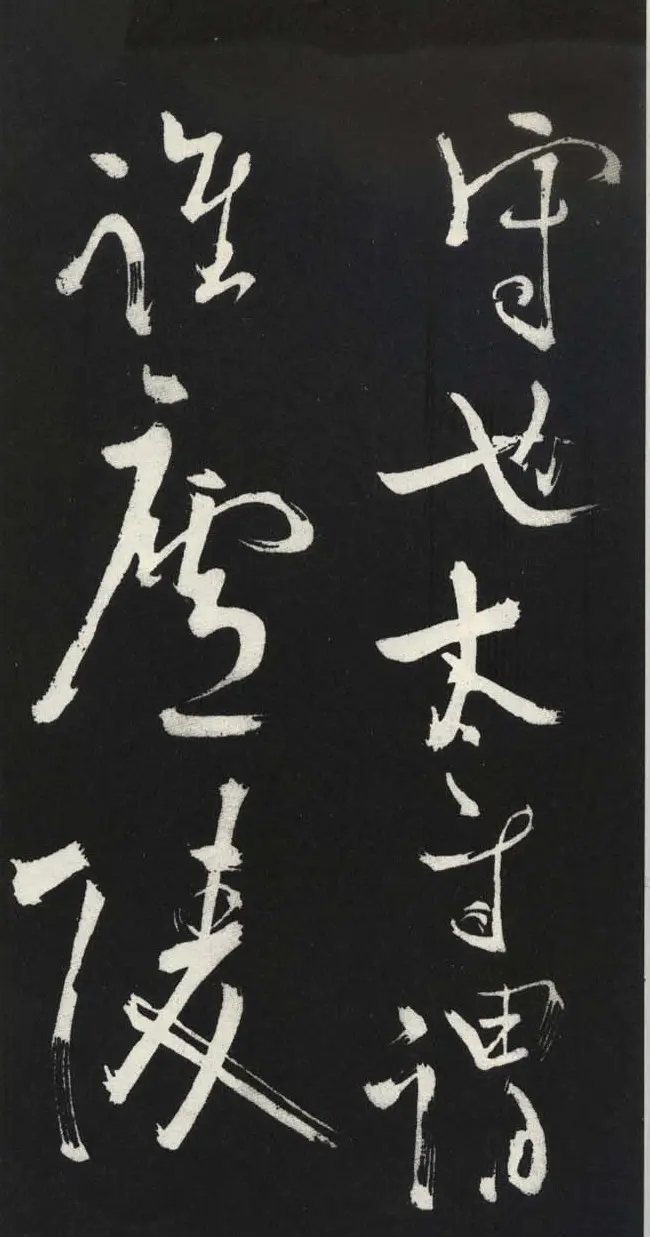 守也太守謂
誰廬陵